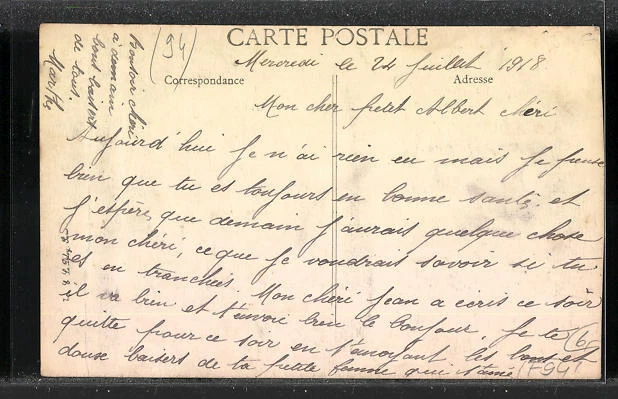 CARTE POSTALE
Mercredi le 24 Juillet 1918
Correspondance
Adresse
Mon cher petit Albert chéri
Aujourd'hui Je n'ai rien eu mais Je pense
bien que tu es toujours en bonne santé. et
J'espère que demain J'aurais quelque chose
mon chéri, ce que Je voudrais savoir si tu
es en tranchées. Mon chéri Jean a ecris ce soir
il va bien et t'envoi bien le bonjour. Je te
quitte pour ce soir en t'envoyant les bons et
doux baisers de ta petite femme qui t'aime
Bonsoir chéri
à demain
bons baisers
de tous.
(94)
(6
1794